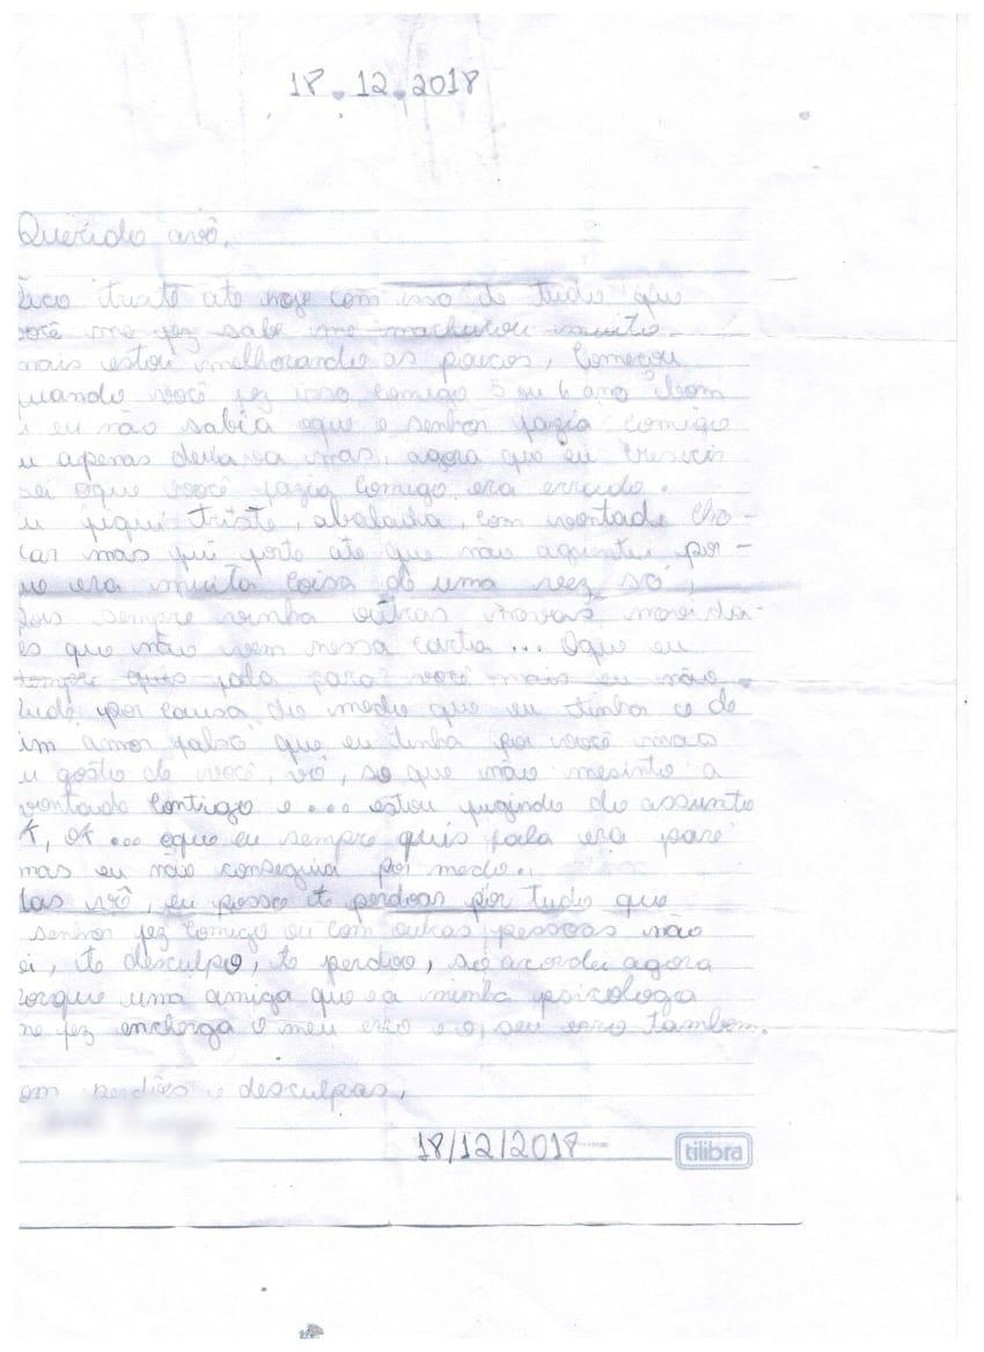 18.12.2018
Querido avô,
fico triste ate hoje com isso de tudo que
você me fez sabe me machucou muito
mais estou melhorando as poucos, começou
quando você fez isso comigo 5 ou 6 ano bom
eu não sabia oque o senhor fazia comigo
u apenas deixava mas, agora que eu cresci
sei oque você fazia comigo era errado.
u fiquei triste, abalada, com vontade cho-
rar mas fui forte ate que não aguentei por-
ue era muita coisa de uma vez só,
pois sempre vinha outras novas
es que não vem nessa carta... Oque eu
sempre quis fala para você mais eu não
pude por causa do medo que eu tinha e de
um amor falso que eu tinha por você mas
u gosto de você, vô, so que não mesinto a
vontade contigo e .... estou fugindo do assunto
k, ok ... oque eu sempre quis fala era pare
mas eu não conseguia por medo..
Mas vô, eu posso te perdoar por tudo que
senhor fez comigo ou com outras pessoas não
ei, te desculpo, te perdoo, só acordei agora
porque uma amiga que e a minha psicologa
me fez encherga o meu erro e o seu erro tambem.
om perdões e desculpas,
18/12/2018
tilibra